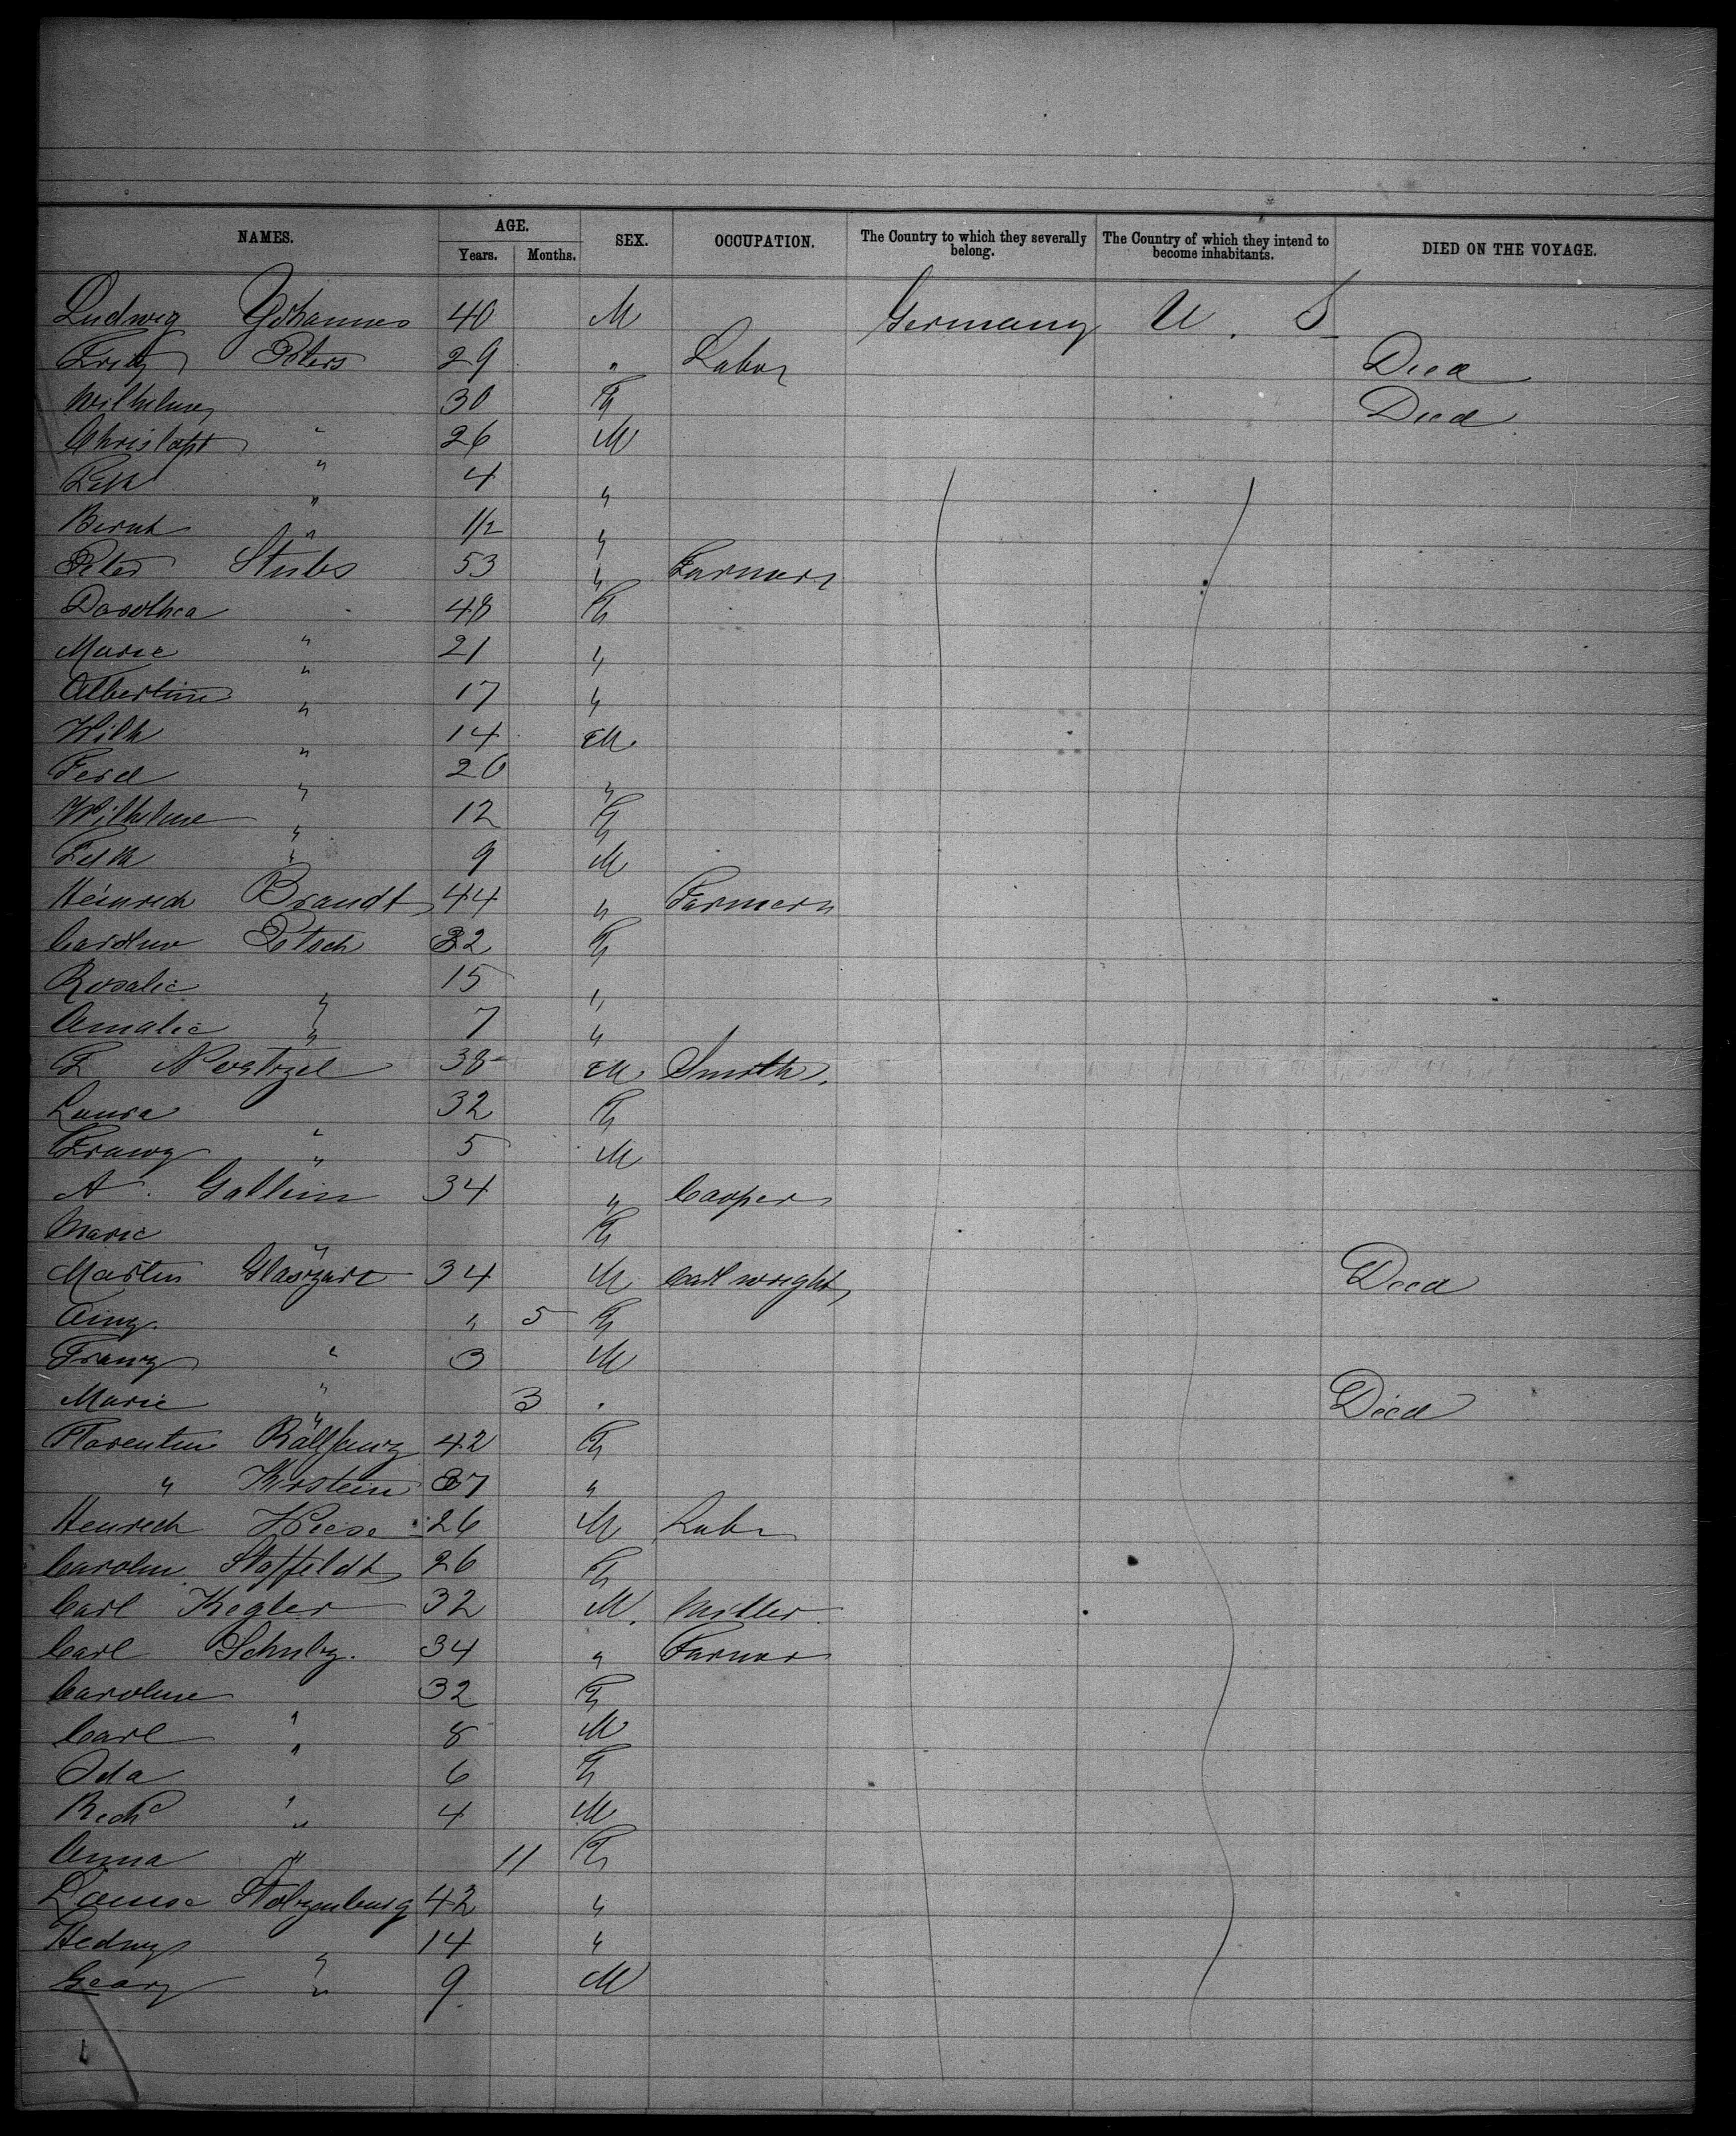 NAMES. AGE. SEX. OCCUPATION. The Country to which they severally belong. The Country of which they intend to become inhabitants. DIED ON THE VOYAGE.
Years. Months.
Ludwig Johannes 40 M Germany U. S
Fritz Peters 29 " Labor Died
Wilhelmine 30 F Died
Christoph " 26 M
" 4 "
Bernh " 1 1/2 "
Peter Stubs 53 " Farmer
Dorothea 48 F
Marie " 21 "
Albertine " 17 "
Wilh " 14 M
Ferd " 20 "
Wilhelmine " 12 F
" 9 M
Heinrich Brandt 44 " Farmer
Caroline Petsch 32 F
Rosalie " 15 "
Amalie " 7 "
F 38 M Smith
Laura " 32 F
Franz " 5 M
A. Gallein 34 " Cooper
Marie " F
Martin 34 M Cartwright Died
" 5 F
Franz " 3 M
Marie " 3 " Died
Florentine 42 F
" Kirstein 37 "
Heinrich Wiese 26 M Labor
Carolin Staffeldt 26 F
Carl Kegler 32 M. Miller
Carl Schulz. 34 " Farmer
Caroline " 32 F
Carl " 8 M
Ida " 6 F
Richd " 4 M
Anna " 11 F
Louise Stolzenburg 42 "
Hedwig " 14 "
Georg " 9 M